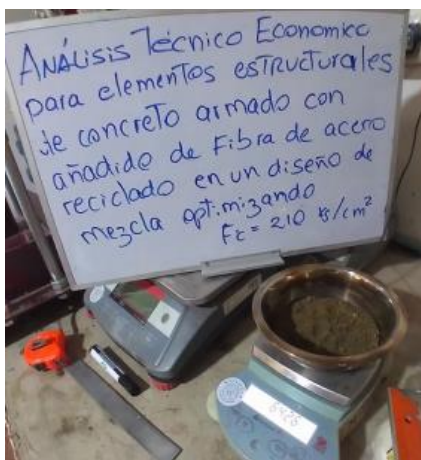 ANÁLISIS TÉCNICO ECONOMICO
para elementos estructurales
de concreto armado con
añadido de Fibra de acero
reciclado en un diseño de
mezcla optimizando
F'c = 210 kg/cm²